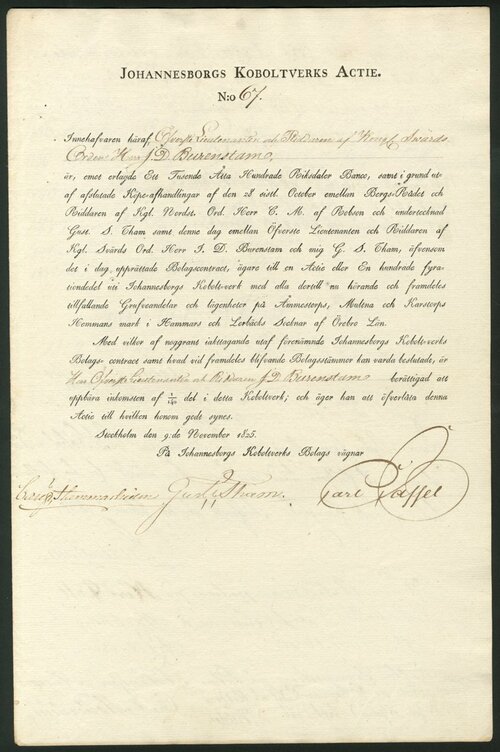 JOHANNESBORGS KOBOLTVERKS ACTIE.
N:o 67.
Innehafvaren häraf, Öfverste Lieutenanten och Riddaren af Kongl. Svärds
Orden Herr J. D. Burenstam,
är, emot erlagde Ett Tusende Åtta Hundrade Riksdaler Banco, samt i grund ut-
af afslutade Köpe-afhandlingar af den 28 sistl. October emellan Bergs-Rådet och
Riddaren af Kgl. Nordst. Ord. Herr C. M. af Robson och undertecknad
Gust. S. Tham samt denne dag emellan Öfverste Lieutenanten och Riddaren af
Kgl. Svärds Ord. Herr J. D. Burenstam och mig G. S. Tham, äfvensom
det i dag upprättade Bolagscontract, ägare till en Actie eller En hundrade fyra-
tiondedel uti Johannesborgs Kobolt-verk med alla dertill nu hörande och framdeles
tillfallande Grufveandelar och lägenheter på Åmmestorps, Mulltna och Karstorps
Hemmans mark i Hammars och Lerbäcks Socknar af Örebro Län.
Med vilkor af noggrant iakttagande utaf förenämnde Johannesborgs Kobolt-verks
Bolags-contract samt hvad vid framdeles blifvande Bolagsstämmor kan varda beslutadt, är
Herr Öfverste Lieutenanten och Riddaren J. D. Burenstam berättigad att
uppbära inkomsten af 1/140 del i detta Koboltverk; och äger han att öfverlåta denna
Actie till hvilken honom godt synes.
Stockholm den 9:de November 1825.
På Johannesborgs Koboltverks Bolags vägnar
Gust. S. Tham. Carl